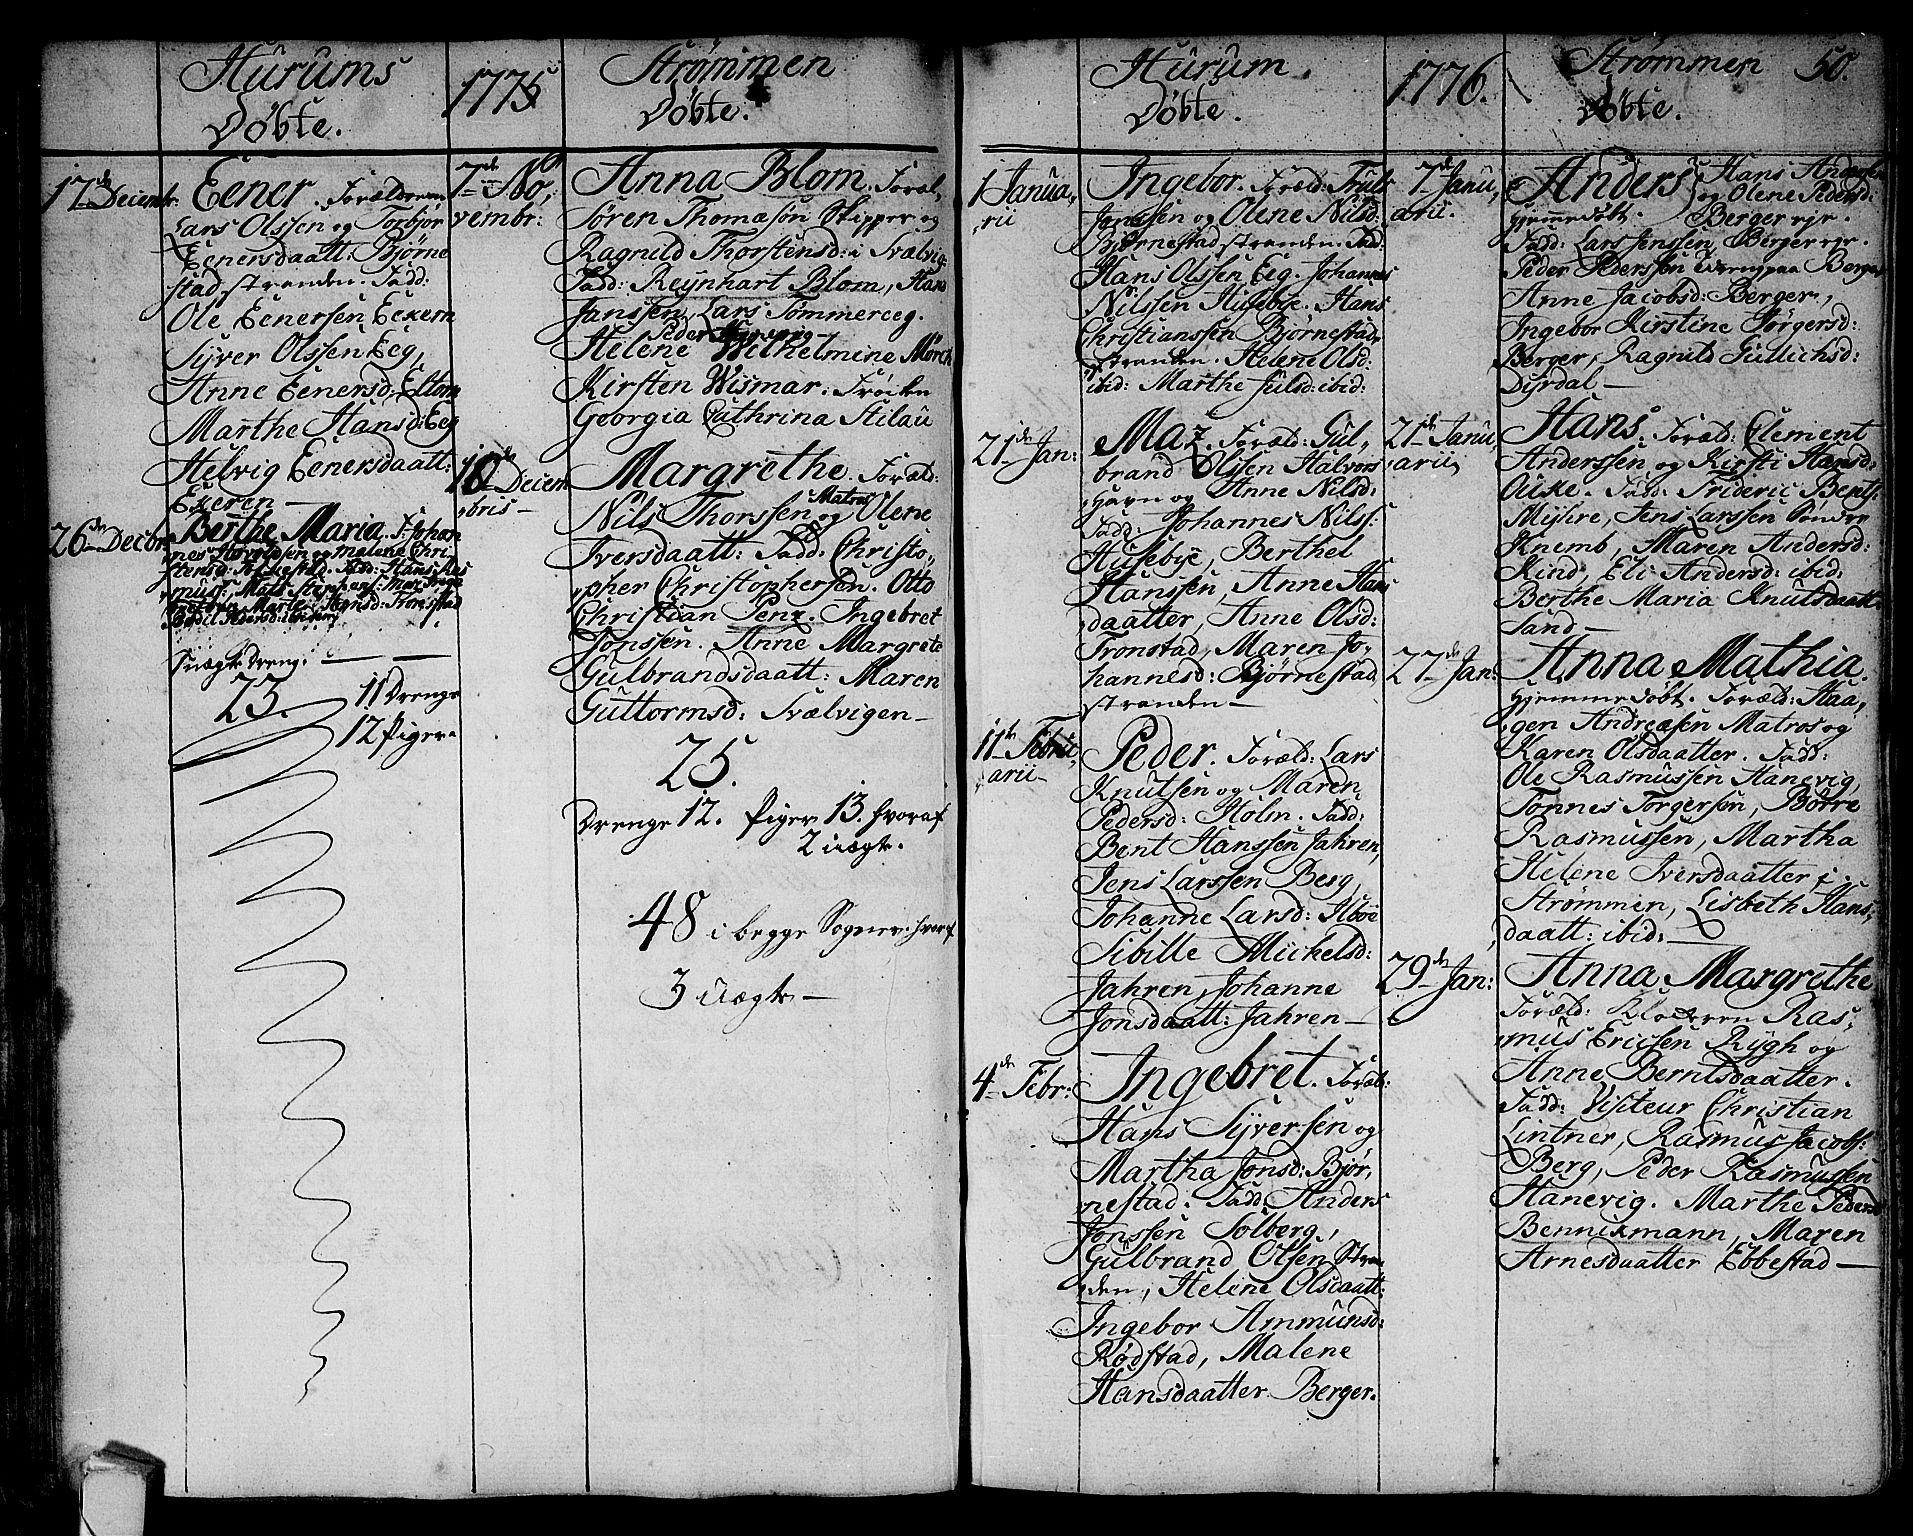 Hurums
Døbte.
1775
Strømmen
Døbte.
17de Decembr:
Eener. Forældrene
Lars Olssen og Torbjor
Eenersdaatt: Bjørne
stadstranden. Fadd:
Ole Eenersen Eckern
Syver Olssen Eeg,
Anne Eenersd, Eltom
Marthe Hansd: Eeg
Helvig Eenersdaatt:
Ekeren—
26de Decbr
Berthe Maria. F: Johan
nes og Malene Chri-
stensd. Fadd: Hans Ras
muss: Mats
Marte Tronstad
Bodil Pedersd:
Uægte Dreng. — —
23.
11 Drenge
12 Piger
7de No,
vembr:
Anna Blom. Foræl,
Søren Thomasøn Skipper og
Ragnild Thorstensd: i Svælvig.
Fadd: Reijnhart Blom, Hans
Janssen, Lars Tømmereeg.
Peder
Helene Wilhelmine Mørch
Kirsten Wismar. Frøcken
Georgia Cathrina Stilau
10de Decem
bris—
Margrethe. Foræld:
Nils Thorssen Matros og Olene
Iversdaatt: Fadd: Christo,
pher Christophersen. Otto
Christian Penz. Ingebret
Jonssen. Anne Margrete
Gulbrandsdaatt: Maren
Guttormsd: Svælvigen—
25.
Drenge 12. Piger 13. hvoraf
2 uægte.
48 i begge Sogner. hvoraf
3 Uægte—
Hurum.
Døbte.
1776.
Strømmen
Døbte.
50.
1 Janua,
rii
Ingebor. Foræld: Truls
Jonssen og Olene Nilsd:
Bjørnestadstranden. Fadd:
Hans Olssen Eeg. Johannes
Nilssen Husebye. Hans
Christianssen Bjørnestad,
stranden. Helene Olsd:
ibid: Marthe Juulsd: ibid:
21de Jan:
Maz. Foræld: Gul,
brand Olssen Halvors
havn og Anne Nilsd:
Fadd: Johannes Nilss:
Husebye, Berthel
Hanssen, Anne Hans
daatter, Anne Olsd:
Tronstad, Maren Jo,
hannesd: Bjørnestad
stranden—
11te Febru,
arii—
Peder. Foræld: Lars
Knutsen og Maren
Pedersd: Holm. Fadd:
Bent Hanssen Jahren,
Jens Larssen Berg,
Johanne Larsd: Ilboe
Sibille Michelsd:
Jahren, Johanne
Jonsdaatt: Jahren—
4de Febr:
Ingebret. Foræld:
Hans Syversen og
Martha Jonsd: Bjør,
nestad. Fadd: Anders
Jonssen Solberg,
Gulbrand Olssen Stran
den, Helene Olsdaatt:
Ingebor Ammunsd:
Rødstad, Malene
Hansdaatter Berger.
7de Janu,
arii.
Anders Hans Anderssen
og Olene Pedersd:
hjemmedøbt. Berger eje.
Fadd: Lars Jenssen, Berger eje.
Peder Pederssen Berger
Anne Jacobsd: Berger,
Ingebor Kirstine Jørgensd:
Berger, Ragnild Gullichsd:
Dyrdal—
21de Janu,
arii,
Hans. Foræld: Clement
Anderssen og Kirsti Hansd:
Ocke. Fadd: Frideric Bents:
Myhre, Jens Larssen Sønder
Knemb, Maren Andersd:
Kind, Eli Andersd: ibid:
Berthe Maria Knutsdaatt:
Sand—
27de Jan:
Anna Mathia.
hjemmedøbt. Foræld: Haa,
gen Andreæsen Matros og
Karen Olsdaatter. Fadd:
Ole Rasmussen Hanevig,
Tønnes Torgersøn, Børre
Rasmussen, Martha
Helene Iversdaatter i
Strømmen, Lisbeth Hans,
daatt: ibid:—
29de Jan:
Anna Margrethe
Foræld: Klockeren Ras,
mus Ericsen Rygh og
Anne Berntsdaatter.
Fadd: Visiteur Christian
Lintner, Rasmus Jacobs:
Berg, Peder Rasmussen
Hanevig. Marthe Pedersd
Bennikmann, Maren
Arnesdaatter Ebbestad—